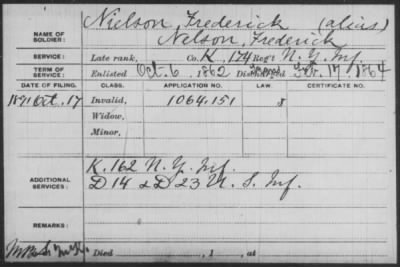 Nielson, Frederick (alias)
NAME OF SOLDIER: Nelson, Frederick
SERVICE: Late rank, Co. K, 174 Reg't N.Y. Inf.
TERM OF SERVICE: Enlisted Oct. 6, 1862 Discharged 17, 1864
DATE OF FILING. CLASS. APPLICATION NO. LAW. CERTIFICATE NO.
1891 Oct. 17 Invalid, 1064.151
Widow,
Minor,
ADDITIONAL SERVICES: K. 162 N.Y. Inf.
D 14 & D 23 U.S. Inf.
REMARKS:
Died , 1 , at